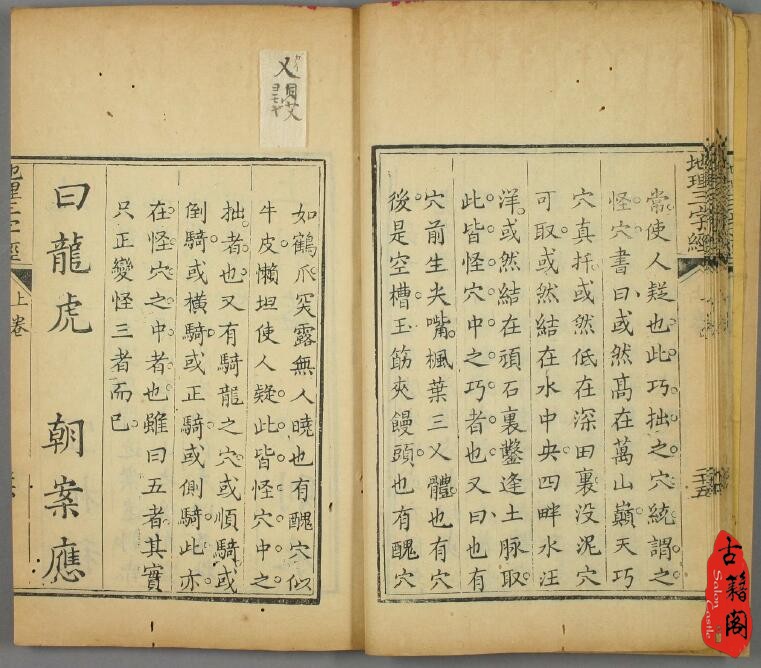 地理三字經
二十五
常使人疑也此巧拙之穴統謂之
怪穴書曰或然髙在萬山巔天巧
穴真扦或然低在深田裏没泥穴
可取或然結在水中央四畔水汪
洋或然結在頑石裏鑿逢土脉取
此皆怪穴中之巧者也又曰也有
穴前生尖嘴楓葉三乂體也有穴
後是空槽玉筯夾饅頭也有醜穴
如鶴爪突露無人曉也有醜穴似
牛皮懶坦使人疑此皆怪穴中之
拙者也又有騎龍之穴或順騎或
倒騎或橫騎或正騎或側騎此亦
在怪穴之中者也雖曰五者其實
只正變怪三者而已
曰龍虎 朝案應
上卷
乂
古籍阁
Salon Castle